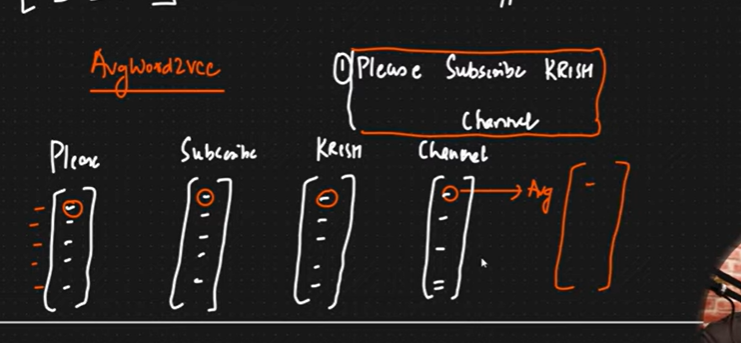 AvgWord2vec
① Please Subscribe KRISH
Channel
Please Subscribe KRISH Channel
Avg